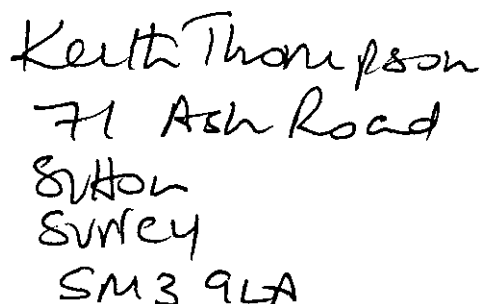 Keith Thompson
71 Ash Road
Sutton
Surrey
SM3 9LA